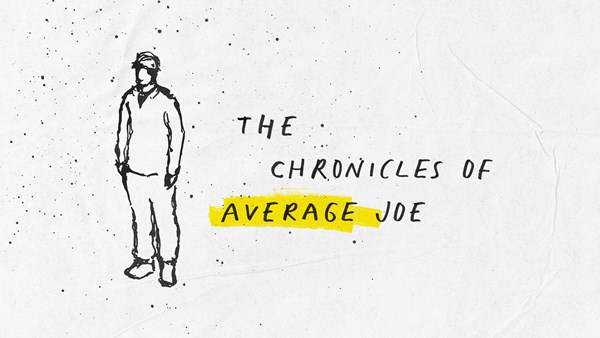 THE
CHRONICLES OF
AVERAGE JOE